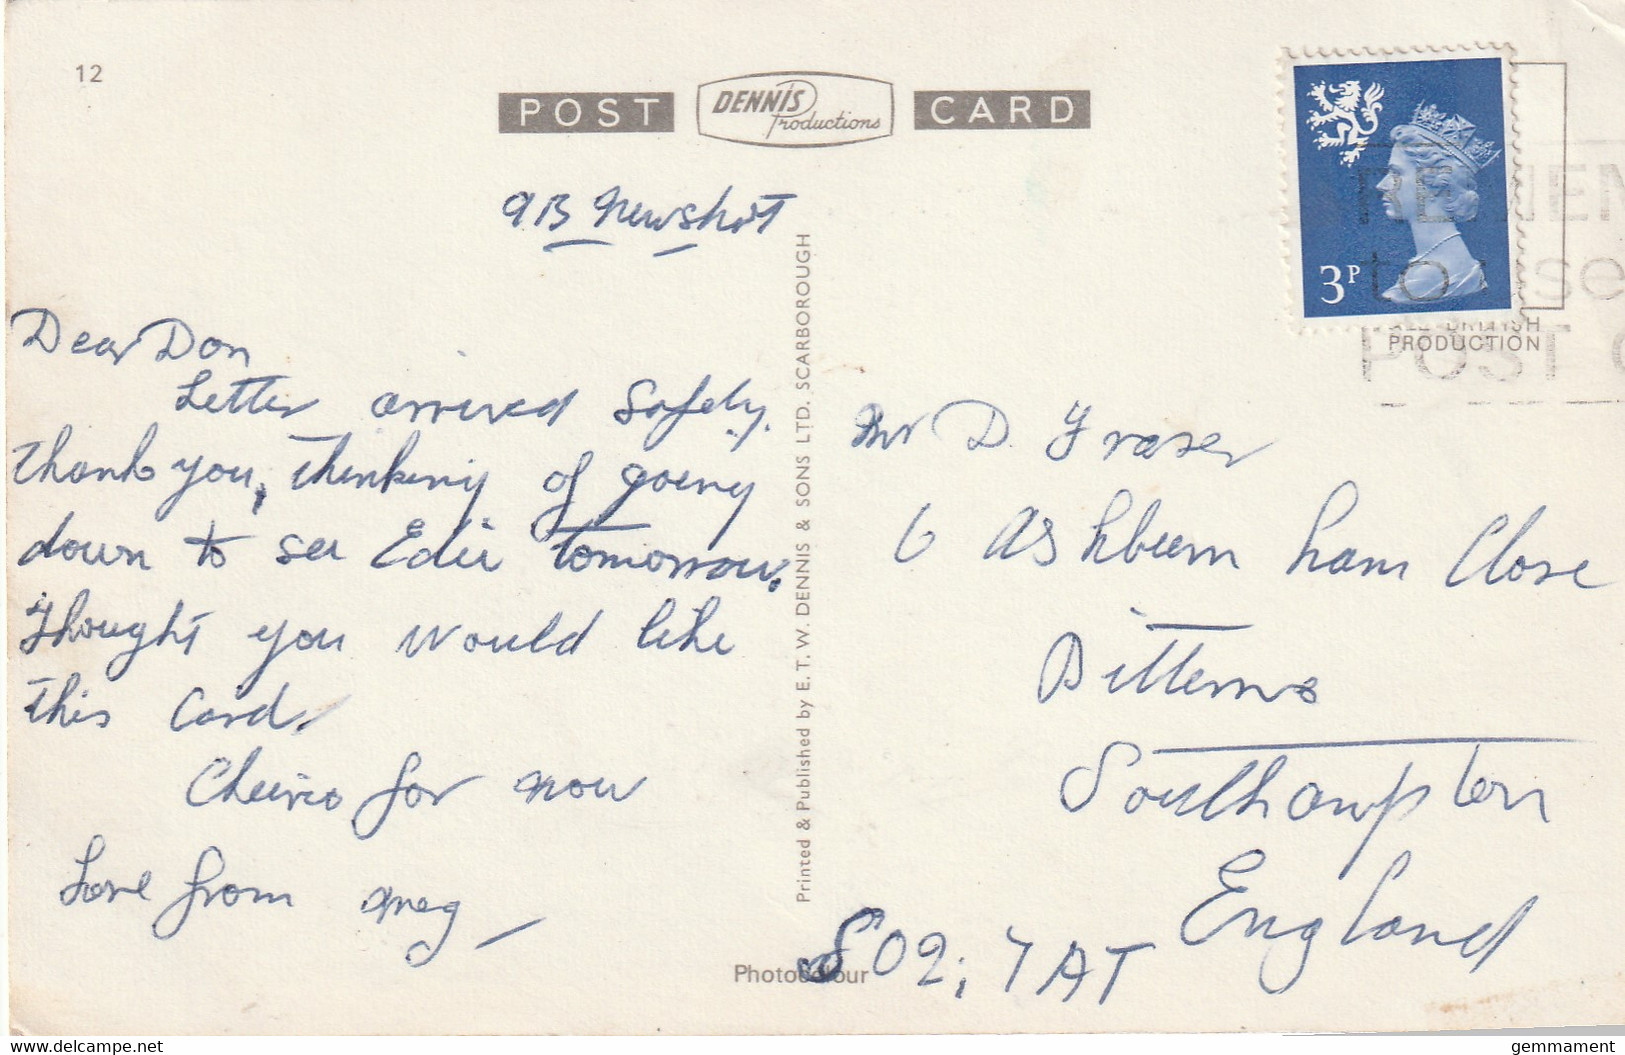 12
POST DENNIS Productions CARD
9B Newshot
Dear Don
Letter arrived safely.
Thank you, thinking of going
down to see Edie tomorrow.
Thought you would like
this card.
Cheerio for now
Love from Meg
Printed & Published by E. T. W. DENNIS & SONS LTD. SCARBOROUGH
Photocolour
3P
REMEM
to use
POST C
ALL BRITISH
PRODUCTION
Mr D. Fraser
6 Ashburnham Close
Bitterne
Southampton
England
SO2, 7AT
delcampe.net
gemmament